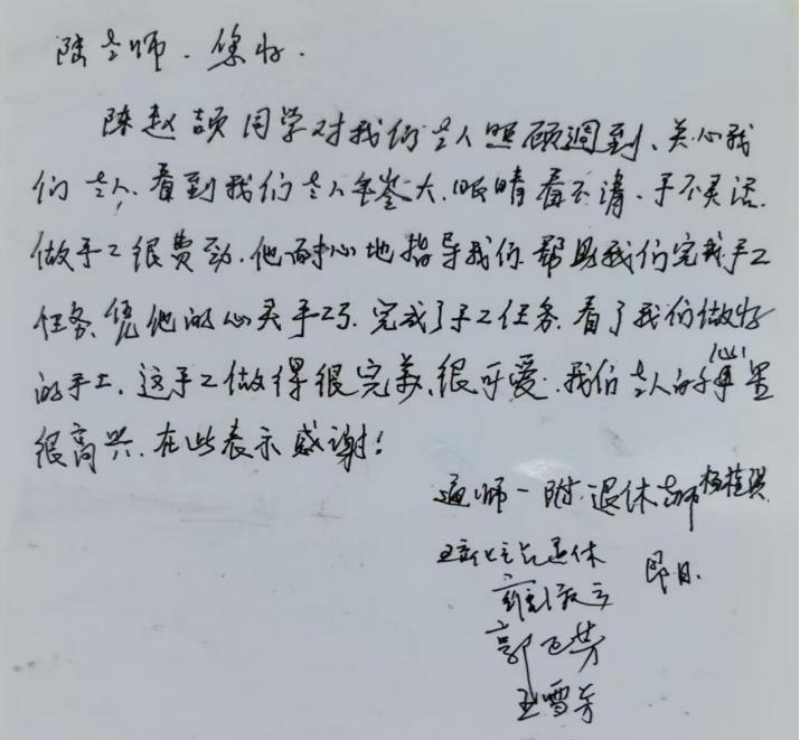 陆老师.您好.
陈赵颉同学对我们老人照顾週到、关心我
们老人.看到我们老人年岺大.眼睛看不清.手不灵活.
做手工很费劲.他耐心地指导我们.帮助我们完成手工
任务.凭他的心灵手巧.完成了手工任务.看了我们做好
的手工.这手工做得很完美、很可爱.我们老人的心里
很高兴.在此表示感谢!
通师一附.退休老师杨桂琪
退休 即日.
郭飞芳
王雪芳